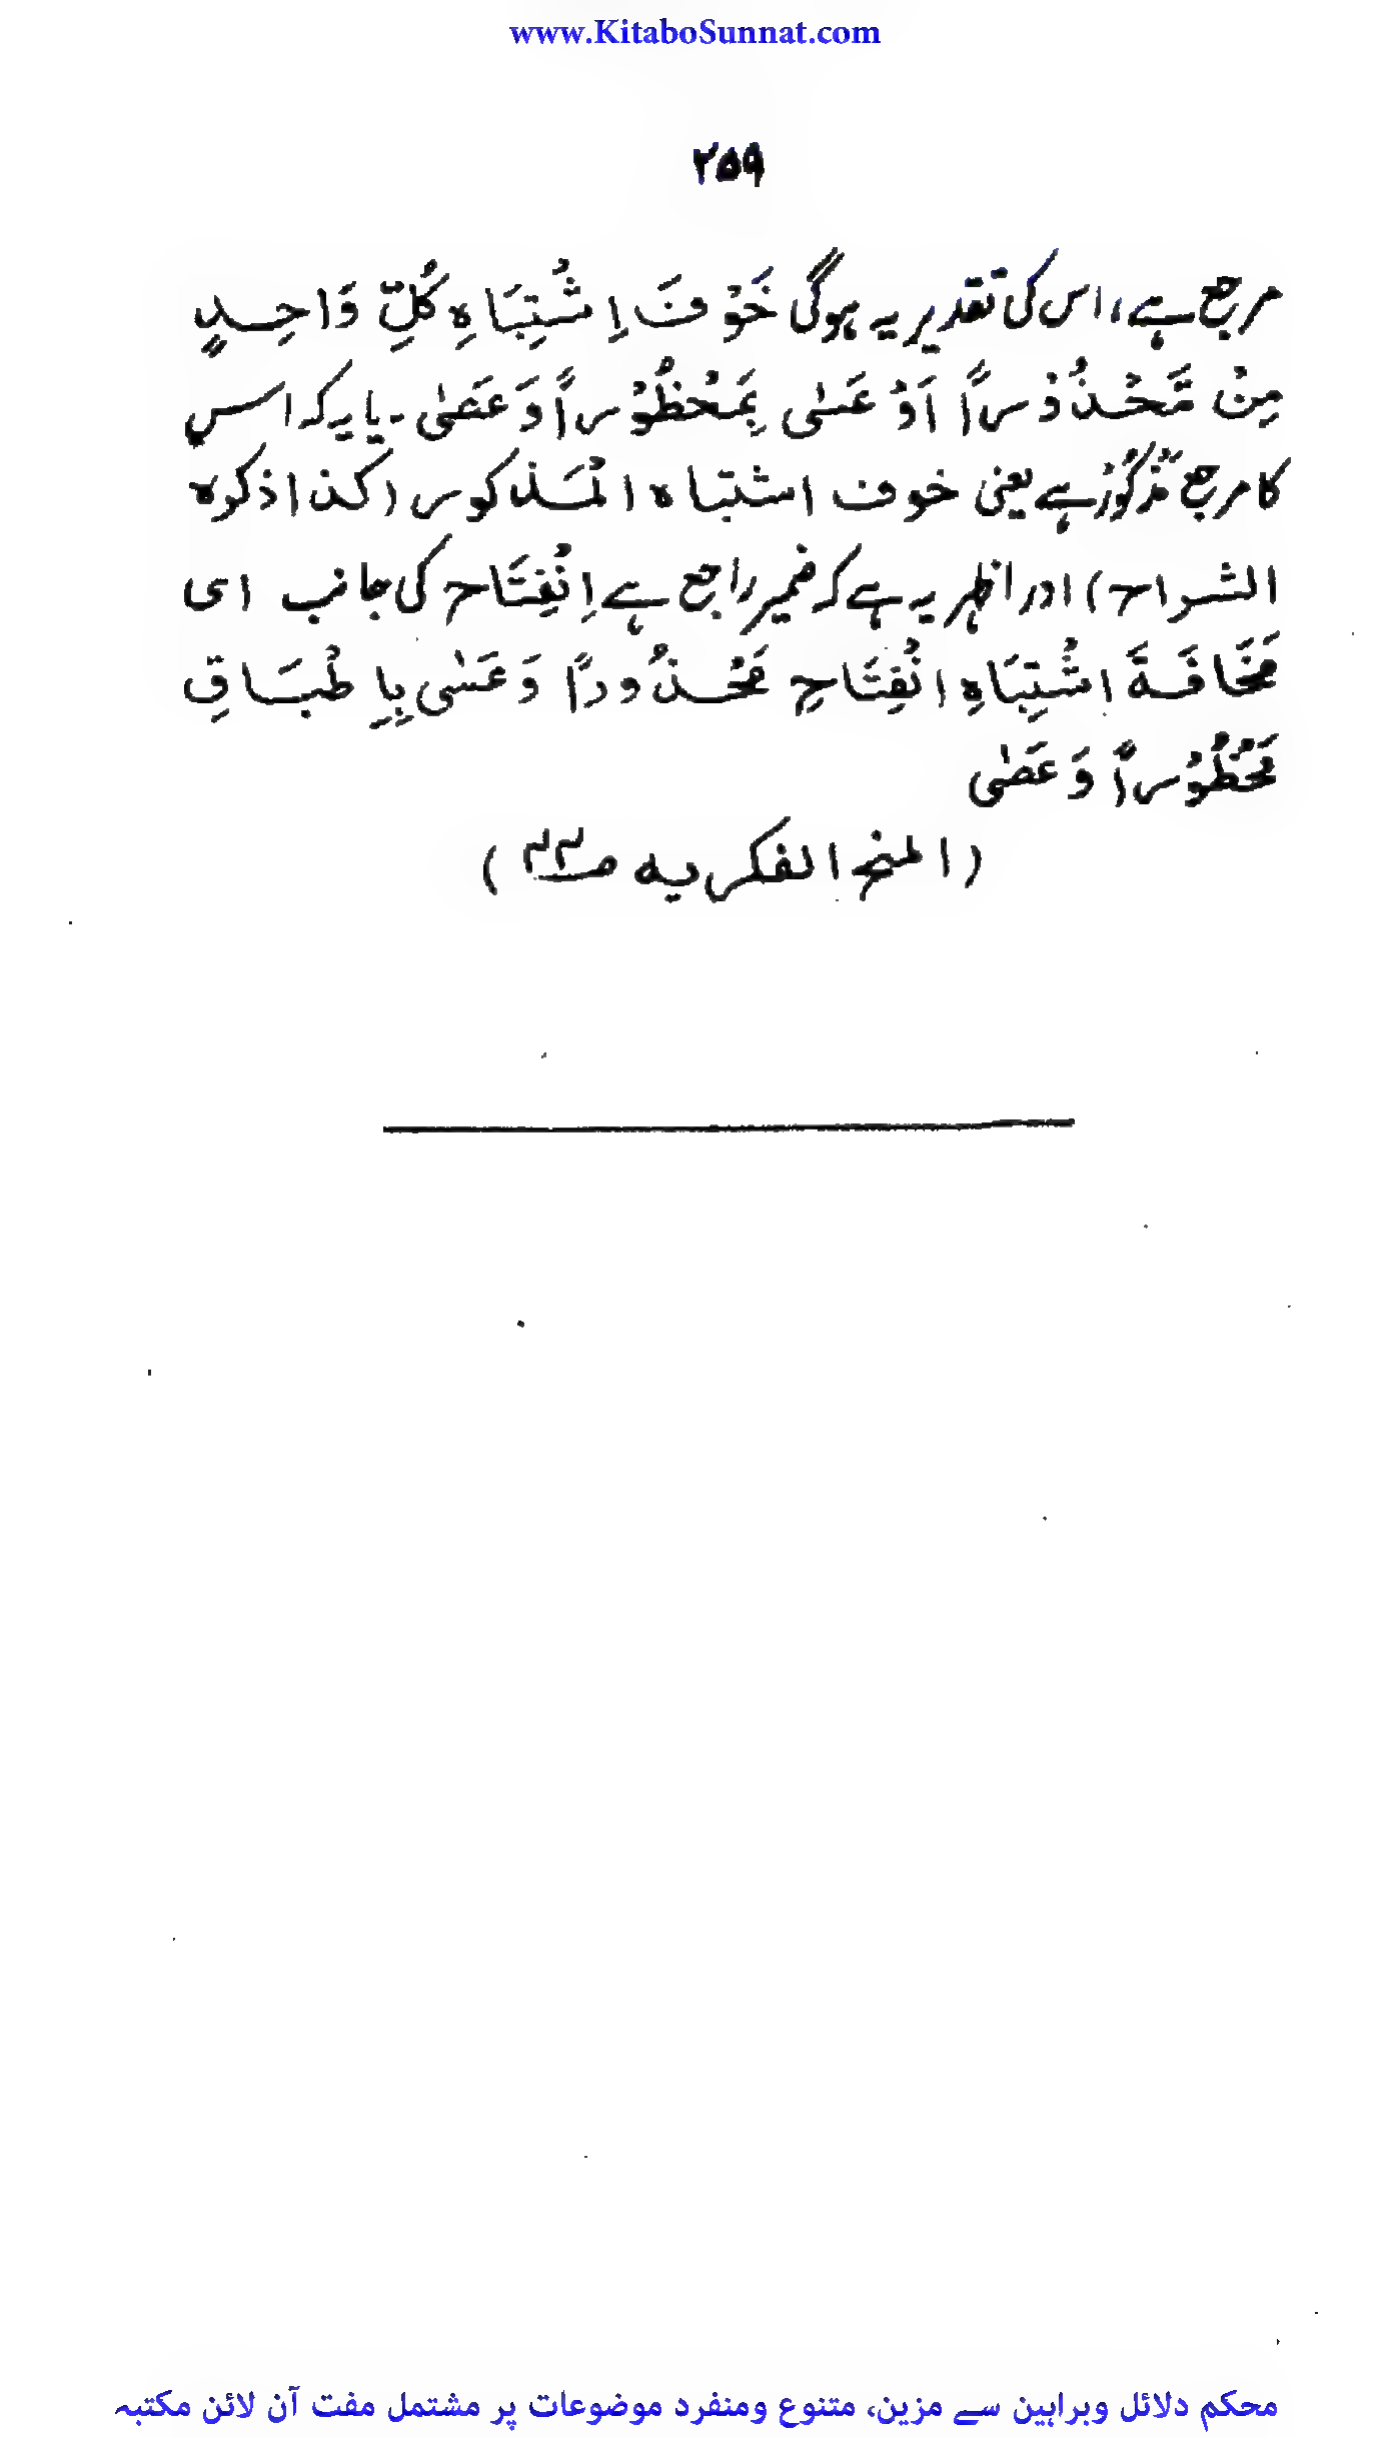 www.KitaboSunnat.com
۲۵۹
مرجع ہے، اس کی تقدیر یہ ہوگی خَوْفَ اِشْتِبَاہِ کُلِّ وَاحِدٍ
مِنْ مَّحْذُوْراً اَوْ عَسٰی بِمَحْظُوْراً وَعَصٰی۔ یا یہ کہ اس
کا مرجع مَذْکُوْر ہے یعنی خوف اشتباہ الْمَذکور (کذا ذکرہ
الشراح) اور اظہر یہ ہے کہ ضمیر راجع ہے اِنْفِتَاح کی جانب ای
مَخَافَةَ اشْتِبَاہِ انْفِتَاحِ مَحْذُوراً وَعَسٰی بِاِطْبَاقِ
مَحْظُوْراً وَعَصٰی
(المنح الفکریہ ص۳۳)
محکم دلائل وبراہین سے مزین، متنوع ومنفرد موضوعات پر مشتمل مفت آن لائن مکتبہ